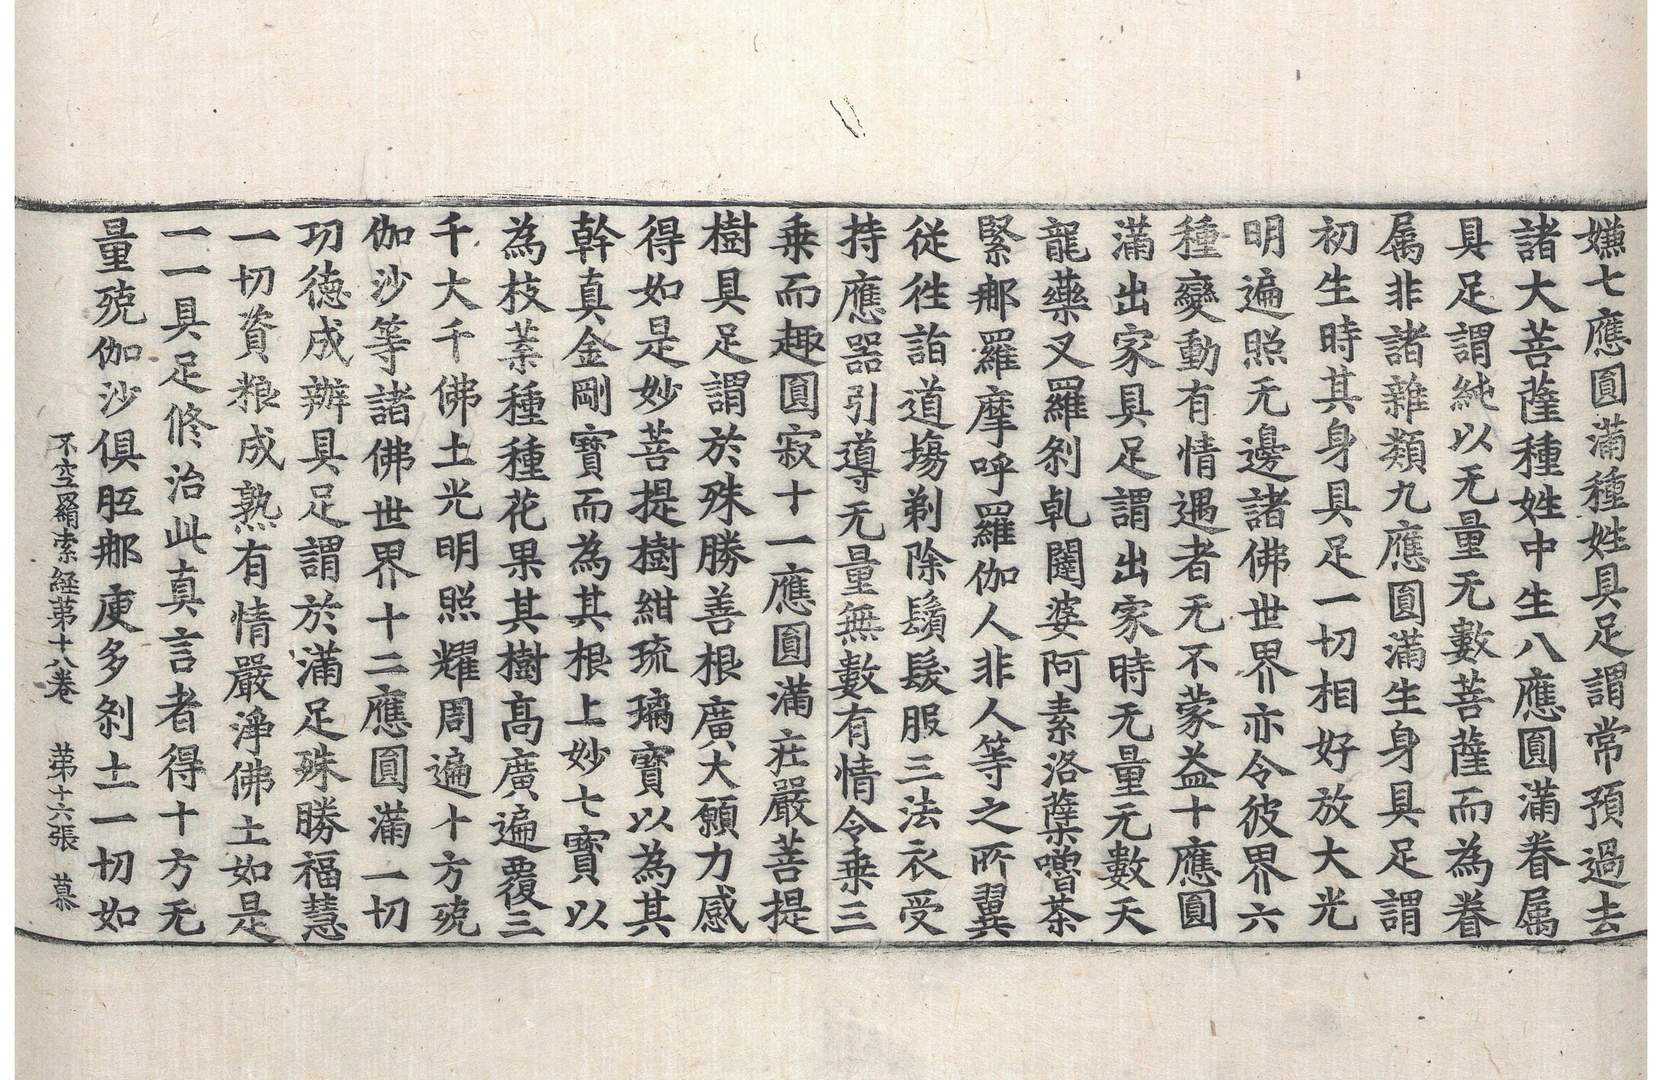 嫌七應圓滿種姓具足謂常預過去
諸大菩薩種姓中生八應圓滿眷属
具足謂純以无量无數菩薩而為眷
属非諸雜類九應圓滿生身具足謂
初生時其身具足一切相好放大光
明遍照无邊諸佛世界亦令彼界六
種變動有情遇者无不蒙益十應圓
滿出家具足謂出家時无量无數天
龍藥叉羅剎乹闥婆阿素洛蘗嚕荼
緊那羅摩呼羅伽人非人等之所翼
従徃詣道塲剃除鬚髮服三法衣受
持應器引導无量無數有情令乗三
乗而趣圓寂十一應圓滿莊嚴菩提
樹具足謂於殊勝善根廣大願力感
得如是妙菩提樹紺琉璃寶以為其
幹真金剛寶而為其根上妙七寶以
為枝葉種種花果其樹髙廣遍覆三
千大千佛土光明照耀周遍十方殑
伽沙等諸佛世界十二應圓滿一切
功德成辦具足謂於滿足殊勝福慧
一切資粮成熟有情嚴淨佛土如是
一一具足修治此真言者得十方无
量殑伽沙俱胝那庾多剎土一切如
不空羂索経苐十八卷　苐十六張　慕